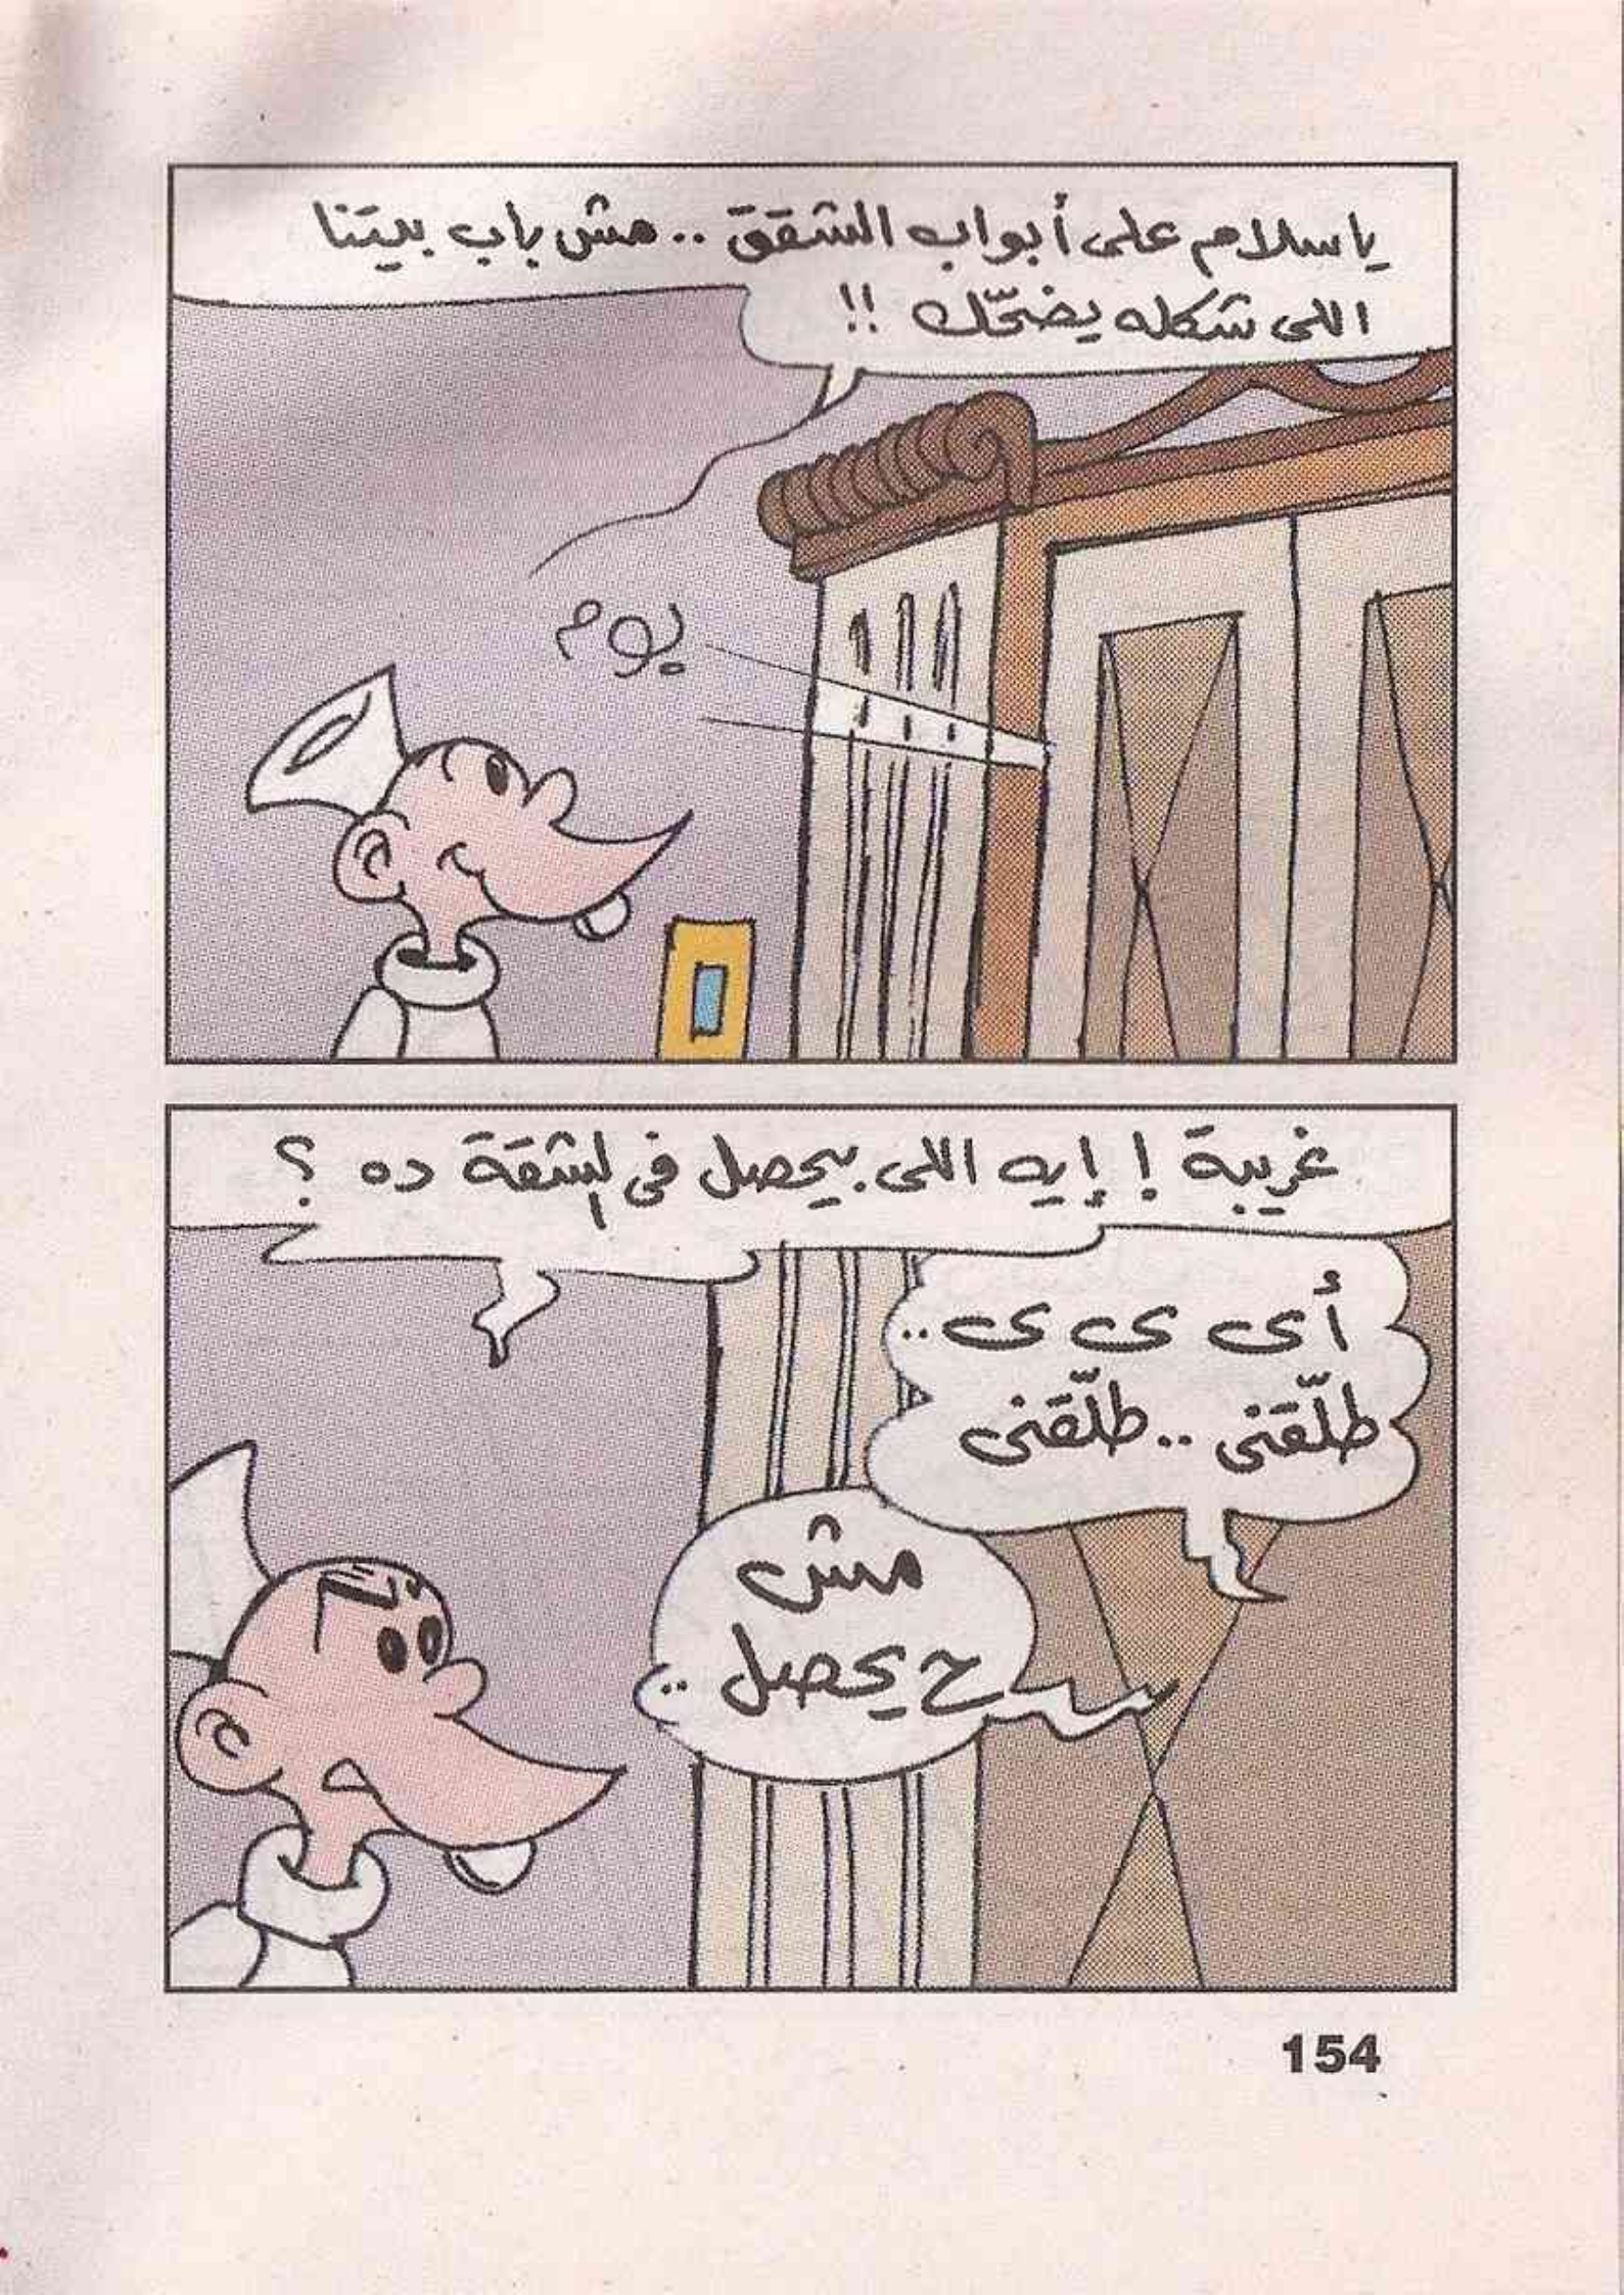 ياسلام على أبواب الشقق .. مش باب بيتنا
اللى شكله يضحّك !!
بوم
غريبة ! إيه اللى بيحصل فى الشقة ده ؟
أى ى ى ..
طلّقنى .. طلّقنى
مش
ح يحصل ..
154